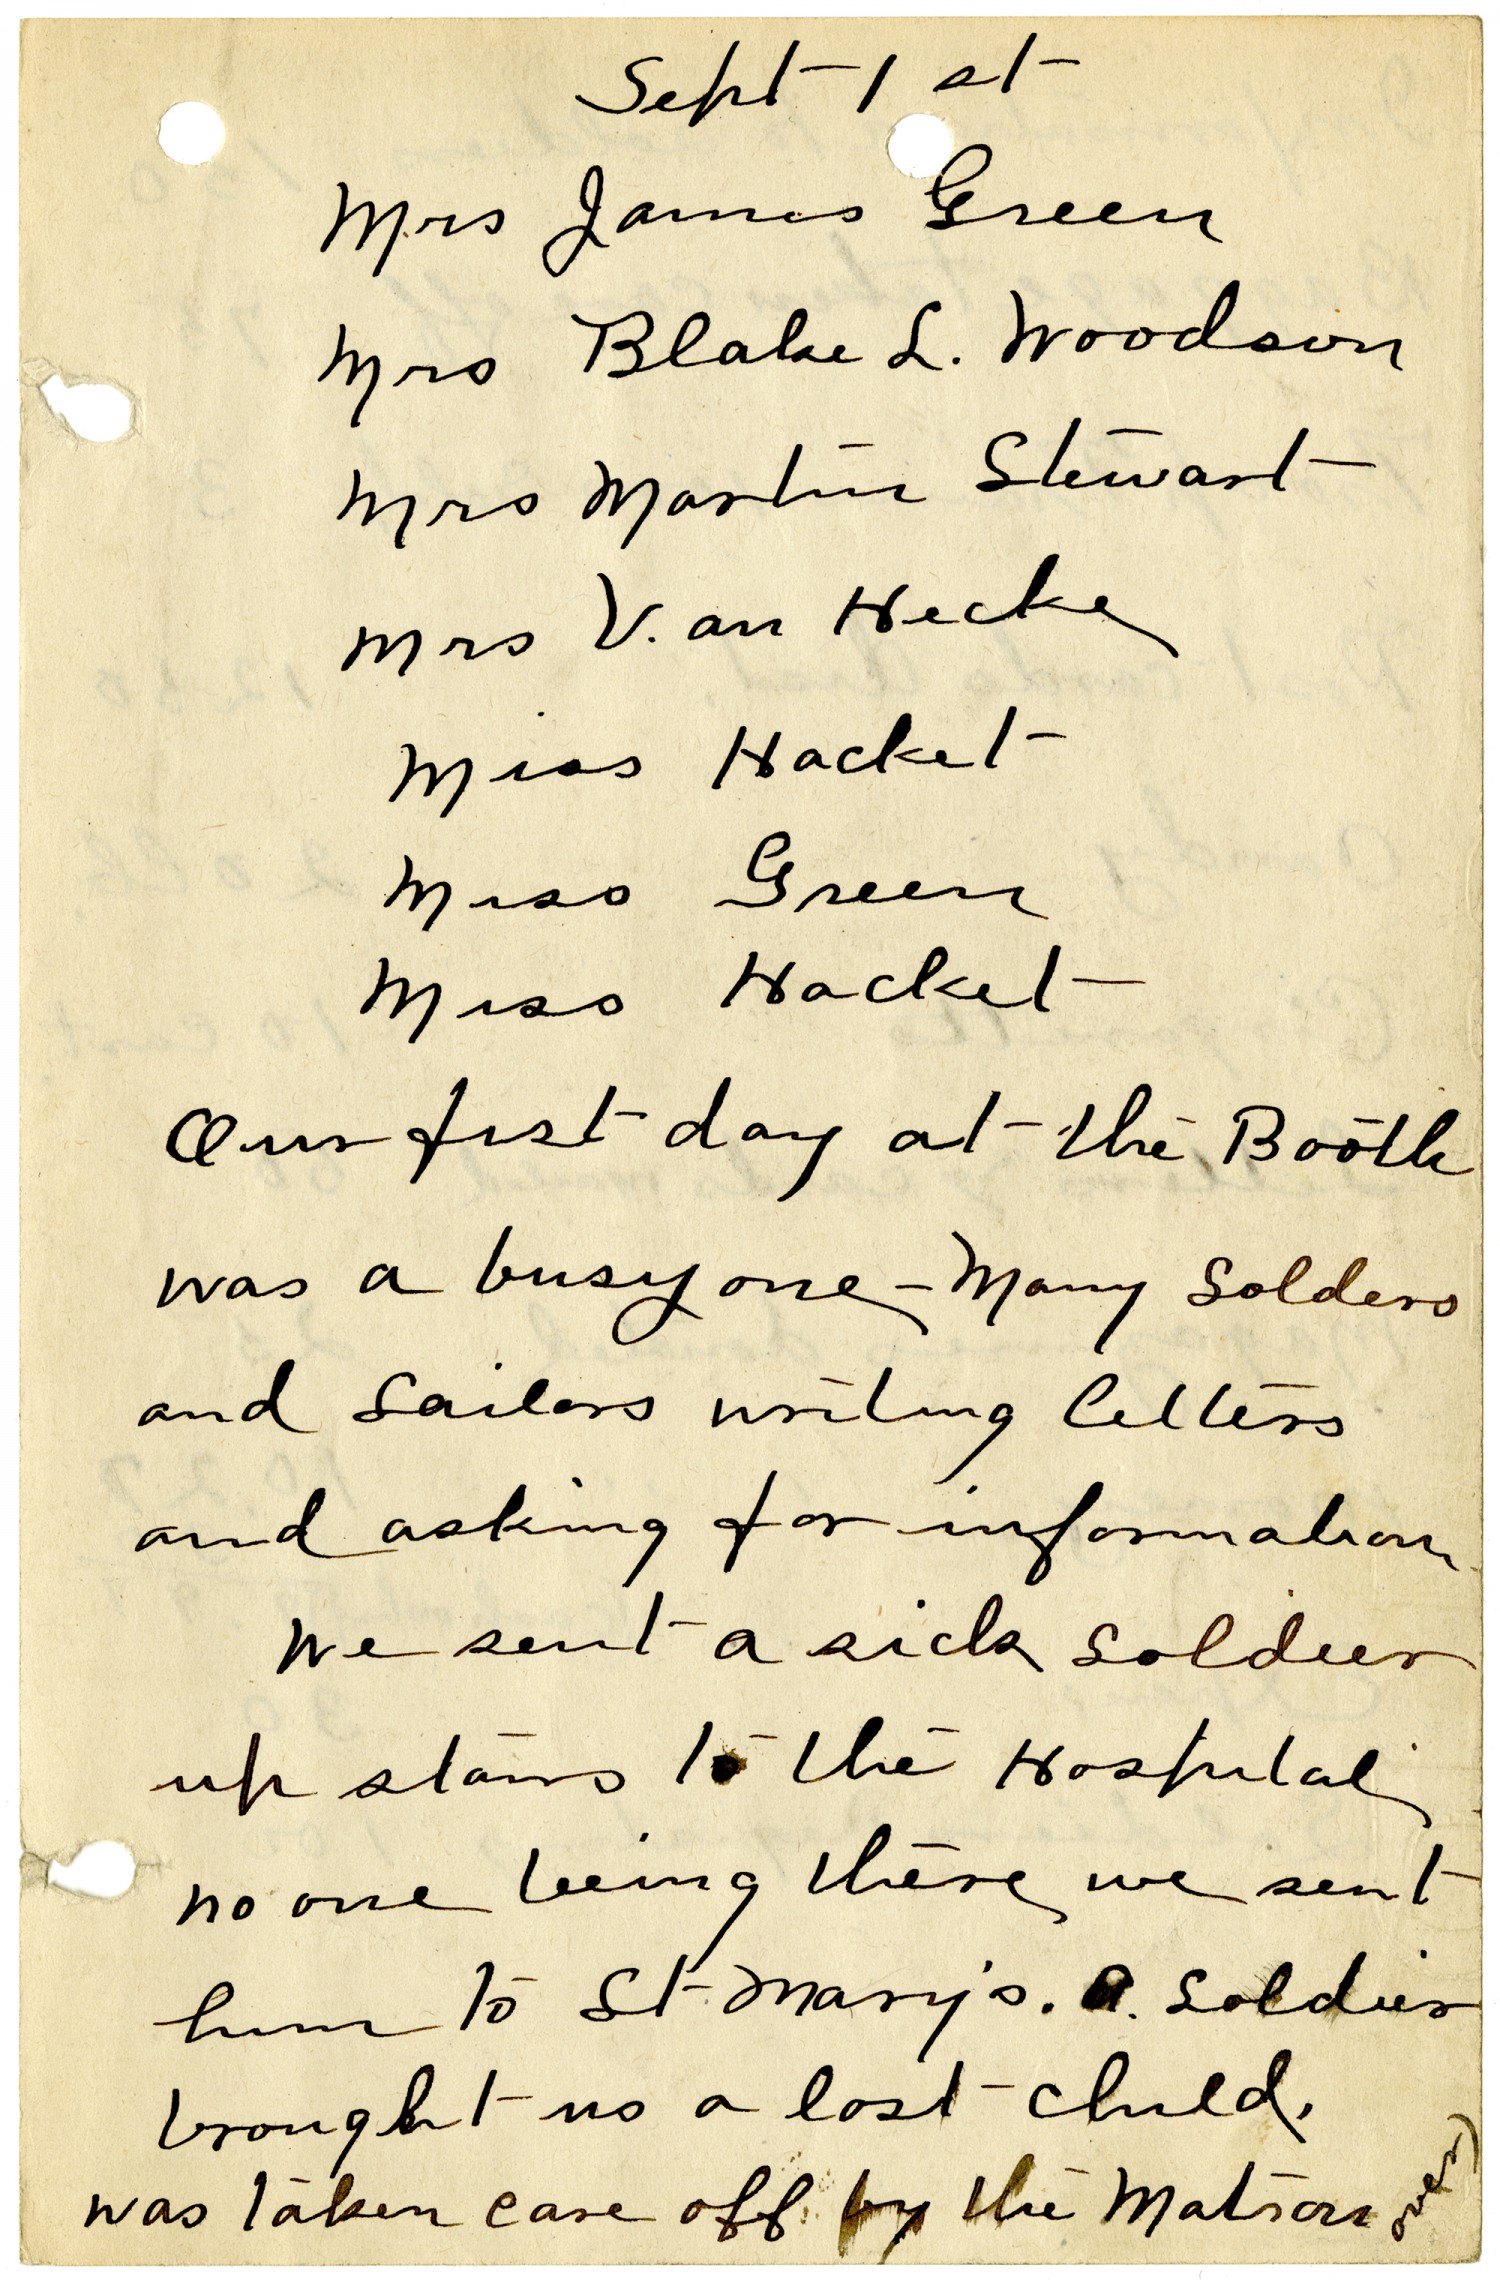 Sept 1 st
Mrs James Green
Mrs Blake L. Woodson
Mrs Martin Stewart
Mrs V. an Hecke
Miss Hacket
Miss Green
Miss Hacket
Our first day at the Booth
was a busy one - Many Solders
and Sailors writing letters
and asking for information
We sent a sick Soldier
up stairs to the Hospital,
no one being there, we sent
him to St Mary's. A. Soldier
brought us a lost child.
was taken care off by the Matron
(over)